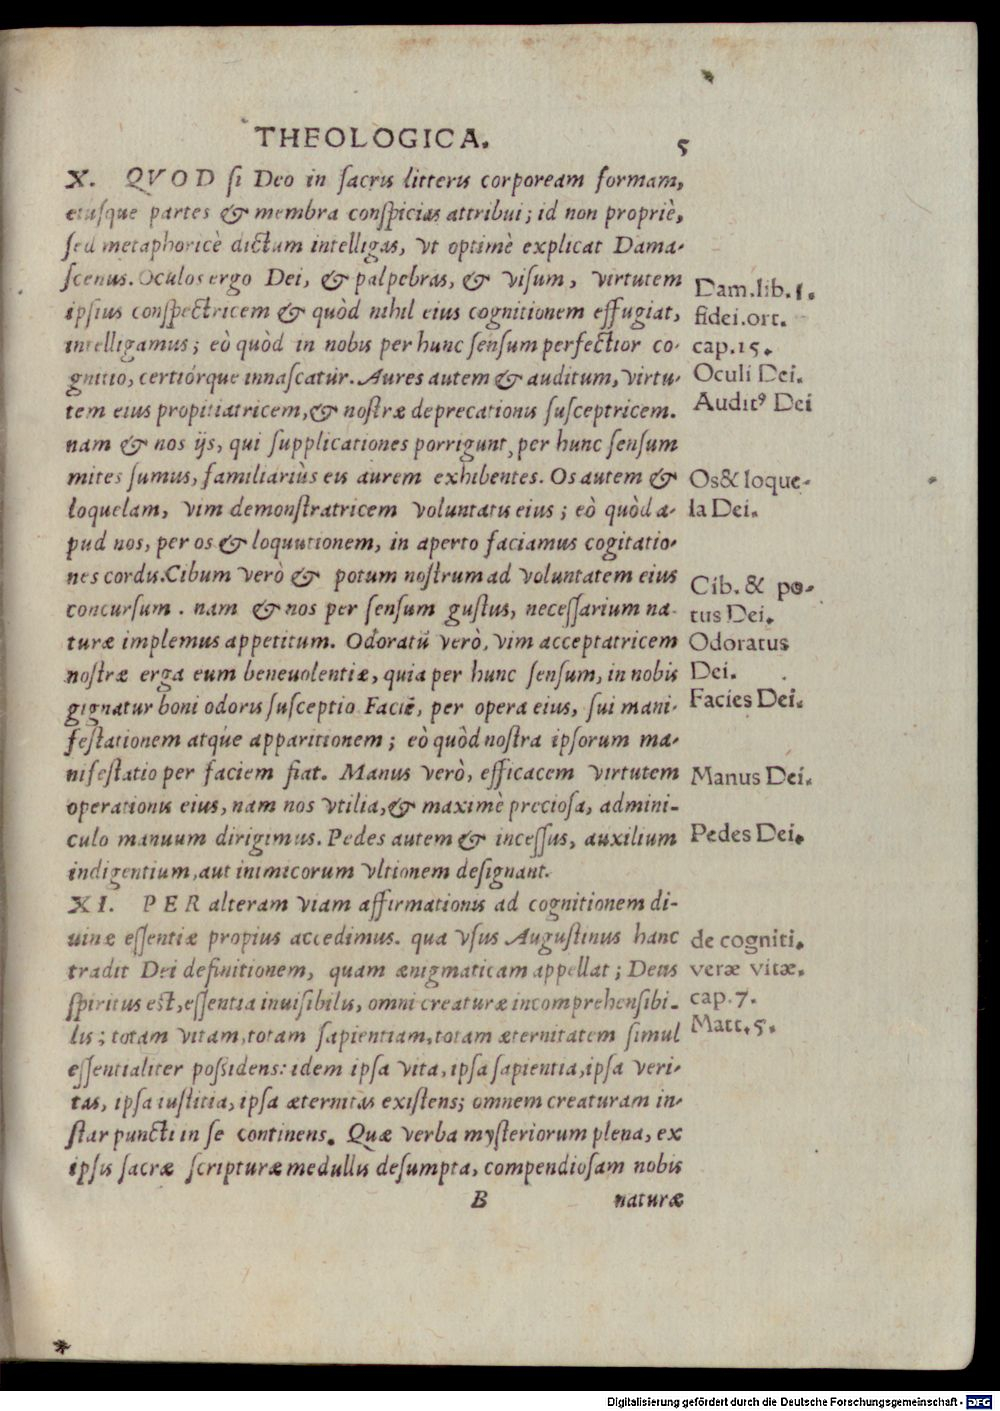 THEOLOGICA. 5
X. QVOD ſi Deo in ſacris litteris corpoream formam,
eiuſque partes & membra conſpicias attribui; id non propriè,
ſed metaphoricè dictum intelligas, vt optimè explicat Dama-
ſcenus. Oculos ergo Dei, & palpebras, & viſum, virtutem
ipſius conſpectricem & quòd nihil eius cognitionem effugiat,
intelligamus; eò quòd in nobis per hunc ſenſum perfectior co-
gnitio, certiórque innaſcatur. Aures autem & auditum, virtu-
tem eius propitiatricem, & noſtræ deprecationis ſuſceptricem.
nam & nos ijs, qui ſupplicationes porrigunt, per hunc ſenſum
mites ſumus, familiariùs eis aurem exhibentes. Os autem &
loquelam, vim demonſtratricem voluntatis eius; eò quòd a-
pud nos, per os & loquutionem, in aperto faciamus cogitatio-
nes cordis. Cibum verò & potum noſtrum ad voluntatem eius
concurſum. nam & nos per ſenſum guſtus, neceſſarium na-
turæ implemus appetitum. Odoratũ verò, vim acceptatricem
noſtræ erga eum beneuolentiæ, quia per hunc ſenſum, in nobis
gignatur boni odoris ſuſceptio. Faciẽ, per opera eius, ſui mani-
feſtationem atque apparitionem; eò quòd noſtra ipſorum ma-
nifeſtatio per faciem fiat. Manus verò, efficacem virtutem
operationis eius, nam nos vtilia, & maximè precioſa, admini-
culo manuum dirigimus. Pedes autem & inceſſus, auxilium
indigentium, aut inimicorum vltionem deſignant.
XI. PER alteram viam affirmationis ad cognitionem di-
uinæ eſſentiæ propius accedimus. qua vſus Auguſtinus hanc
tradit Dei definitionem, quam ænigmaticam appellat; Deus
ſpiritus eſt, eſſentia inuiſibilis, omni creaturæ incomprehenſibi-
lis; totam vitam, totam ſapientiam, totam æternitatem ſimul
eſſentialiter poſſidens: idem ipſa vita, ipſa ſapientia, ipſa veri-
tas, ipſa iuſtitia, ipſa æternitas exiſtens; omnem creaturam in-
ſtar puncti in ſe continens. Quæ verba myſteriorum plena, ex
ipſis ſacræ ſcripturæ medullis deſumpta, compendioſam nobis
B naturæ
Dam. lib. 1.
fidei. ort.
cap. 15.
Oculi Dei.
Auditꝰ Dei
Os & loque-
la Dei.
Cib. & po-
tus Dei.
Odoratus
Dei.
Facies Dei.
Manus Dei.
Pedes Dei.
de cogniti.
veræ vitæ.
cap. 7.
Matt. 5.
Digitalisierung gefördert durch die Deutsche Forschungsgemeinschaft - DFG